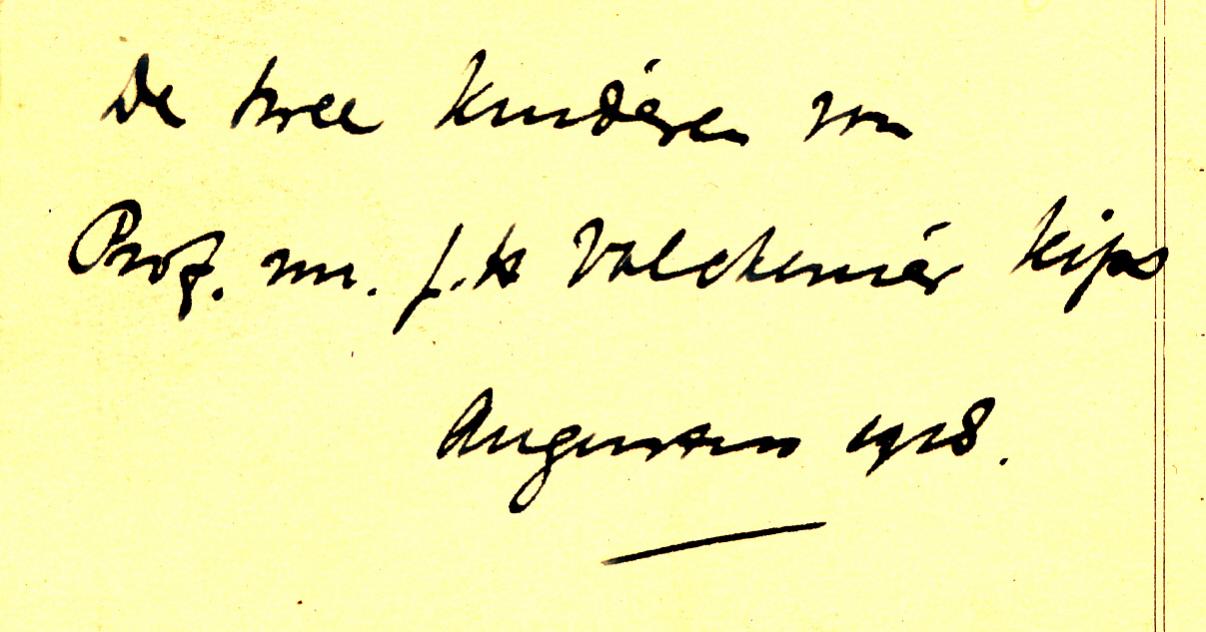 De twee kinderen van
Prof. mr. J. H Valckenier Kips
Augustus 1928.